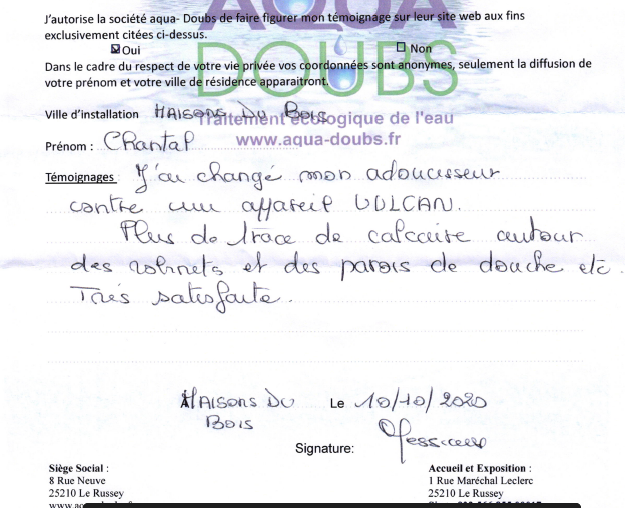 AQUA
DOUBS
J'autorise la société aqua- Doubs de faire figurer mon témoignage sur leur site web aux fins
exclusivement citées ci-dessus.
Oui Non
Dans le cadre du respect de votre vie privée vos coordonnées sont anonymes, seulement la diffusion de
votre prénom et votre ville de résidence apparaitront.
Ville d'installation MAISONS DU BOIS
Traitement écologique de l'eau
www.aqua-doubs.fr
Prénom : Chantal
Témoignages : J'ai changé mon adoucisseur
contre un appareil VULCAN.
Plus de trace de calcaire autour
des robinets et des parois de douche etc.
Très satisfaite.
A MAISONS DU Le 10/10/2020
BOIS
Signature:
Siège Social : Accueil et Exposition :
8 Rue Neuve 1 Rue Maréchal Leclerc
25210 Le Russey 25210 Le Russey